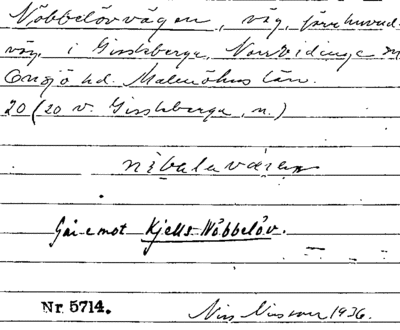 Nöbbelövvägen, väg, förr huvud-
väg i Gissleberga, Norrvidinge sn
Onsjö hd. Malmöhus län.
20 (20 v. Gissleberga, n.)
Går emot Kjells Nöbbelöv.
Nr 5714. Nils Nilsson 1936.